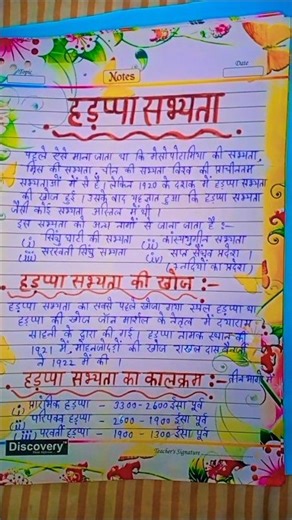 Topic
Date
Notes
हड़प्पा सभ्यता
पहले ऐसे माना जाता था कि मेसोपोटामिया की सभ्यता,
मिस्र की सभ्यता, चीन की सभ्यता विश्व की प्राचीनतम
सभ्यताओं में से है। लेकिन 1920 के दशक में हड़प्पा सभ्यता
की खोज हुई। उसके बाद यह ज्ञात हुआ कि हड़प्पा सभ्यता
जैसी कोई सभ्यता अस्तित्व में थी।
इस सभ्यता को अन्य नामों से जाना जाता है :-
(i) सिंधु घाटी की सभ्यता (ii) कांस्ययुगीन सभ्यता
(iii) सरस्वती सिंधु सभ्यता (iv) सप्त सैंधव प्रदेश।
(7 नदियों का प्रदेश)
हड़प्पा सभ्यता की खोज :-
हड़प्पा सभ्यता का सबसे पहले खोजा गया स्थल हड़प्पा था
हड़प्पा की खोज जॉन मार्शल के नेतृत्व में दयाराम
साहनी के द्वारा की गई। हड़प्पा नामक स्थान की
1921 में, मोहनजोदड़ो की खोज राखल दास बनर्जी
ने 1922 में की।
हड़प्पा सभ्यता का कालक्रम :- तीन भागों में
(i) प्रारंभिक हड़प्पा - 3300-2600 ईसा पूर्व
(ii) परिपक्व हड़प्पा - 2600 - 1900 ईसा पूर्व
(iii) परवर्ती हड़प्पा - 1900 - 1300 ईसा पूर्व
Discovery
Teacher's Signature